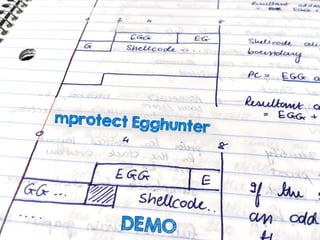 Resultant add
0 2 4 8
EGG EG
G Shellcode...
Shellcode
boundary
PC = EGG
Resultant
= EGG +
mprotect Egghunter
0 4 8
EGG E
GG... Shellcode..
....
DEMO
If the
an odd